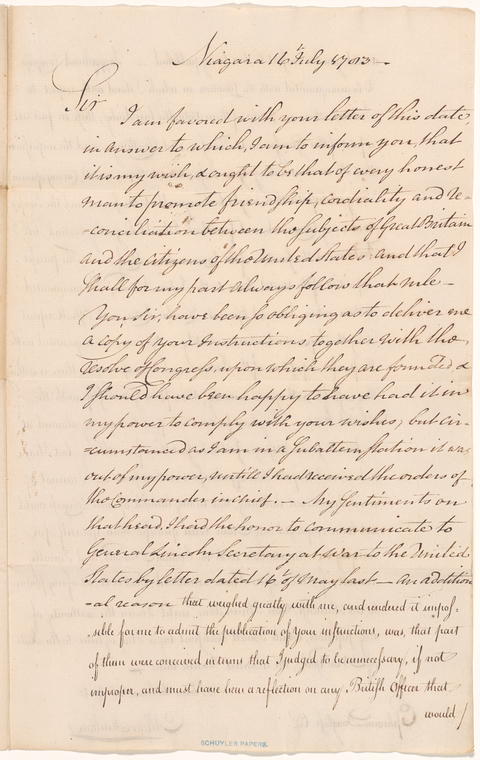 Niagara 16th July 1783 —
Sir
I am favored with your letter of this date,
in answer to which, I am to inform you, that
it is my wish, & ought to be that of every honest
man to promote friendship, cordiality and re-
-conciliation between the Subjects of Great Britain
and the citizens of the United States and that I
shall for my part always follow that rule —
You Sir, have been so obliging as to deliver me
a copy of your Instructions together with the
resolve of Congress, upon which they are founded &
I should have been happy to have had it in
my power to comply with your wishes, but cir-
-cumstanced as I am in a Subaltern station it was
out of my power, untill I had received the orders of
the Commander in chief. — My Sentiments on
that head, I had the honor to communicate to
General Lincoln Secretary at War to the United
States by letter dated 16th of May last — an addition
-al reason that weighed greatly with me, and rendered it impos-
-sible for me to admit the publication of your instructions, was, that part
of them were conceived in terms that I judged to be unnecessary, if not
improper, and must have been a reflection on any British Officer that
would /
SCHUYLER PAPERS.